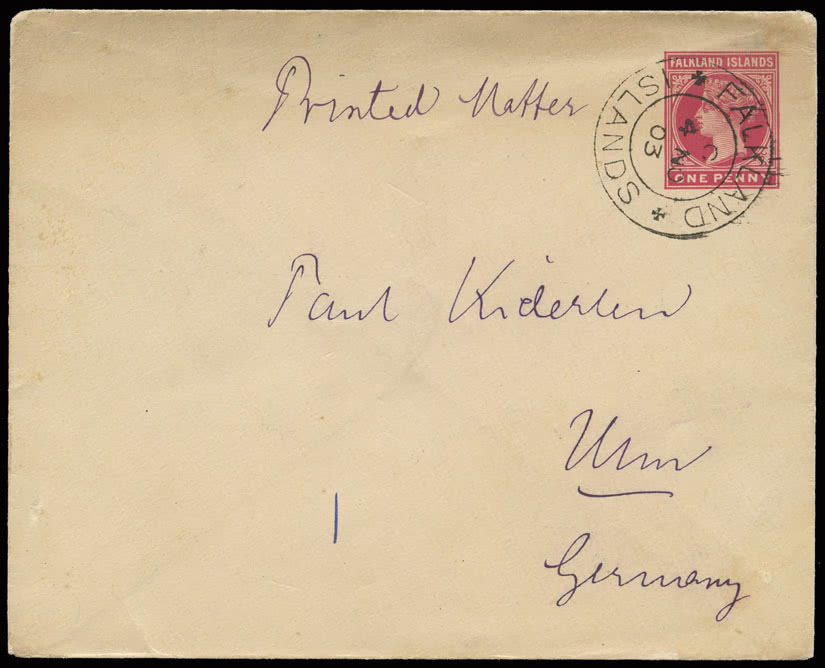 Printed Matter
FALKLAND ISLANDS
ONE PENNY
FALKLAND ISLANDS
C
4 NO
03
Paul Kiderlen
Ulm
1
Germany